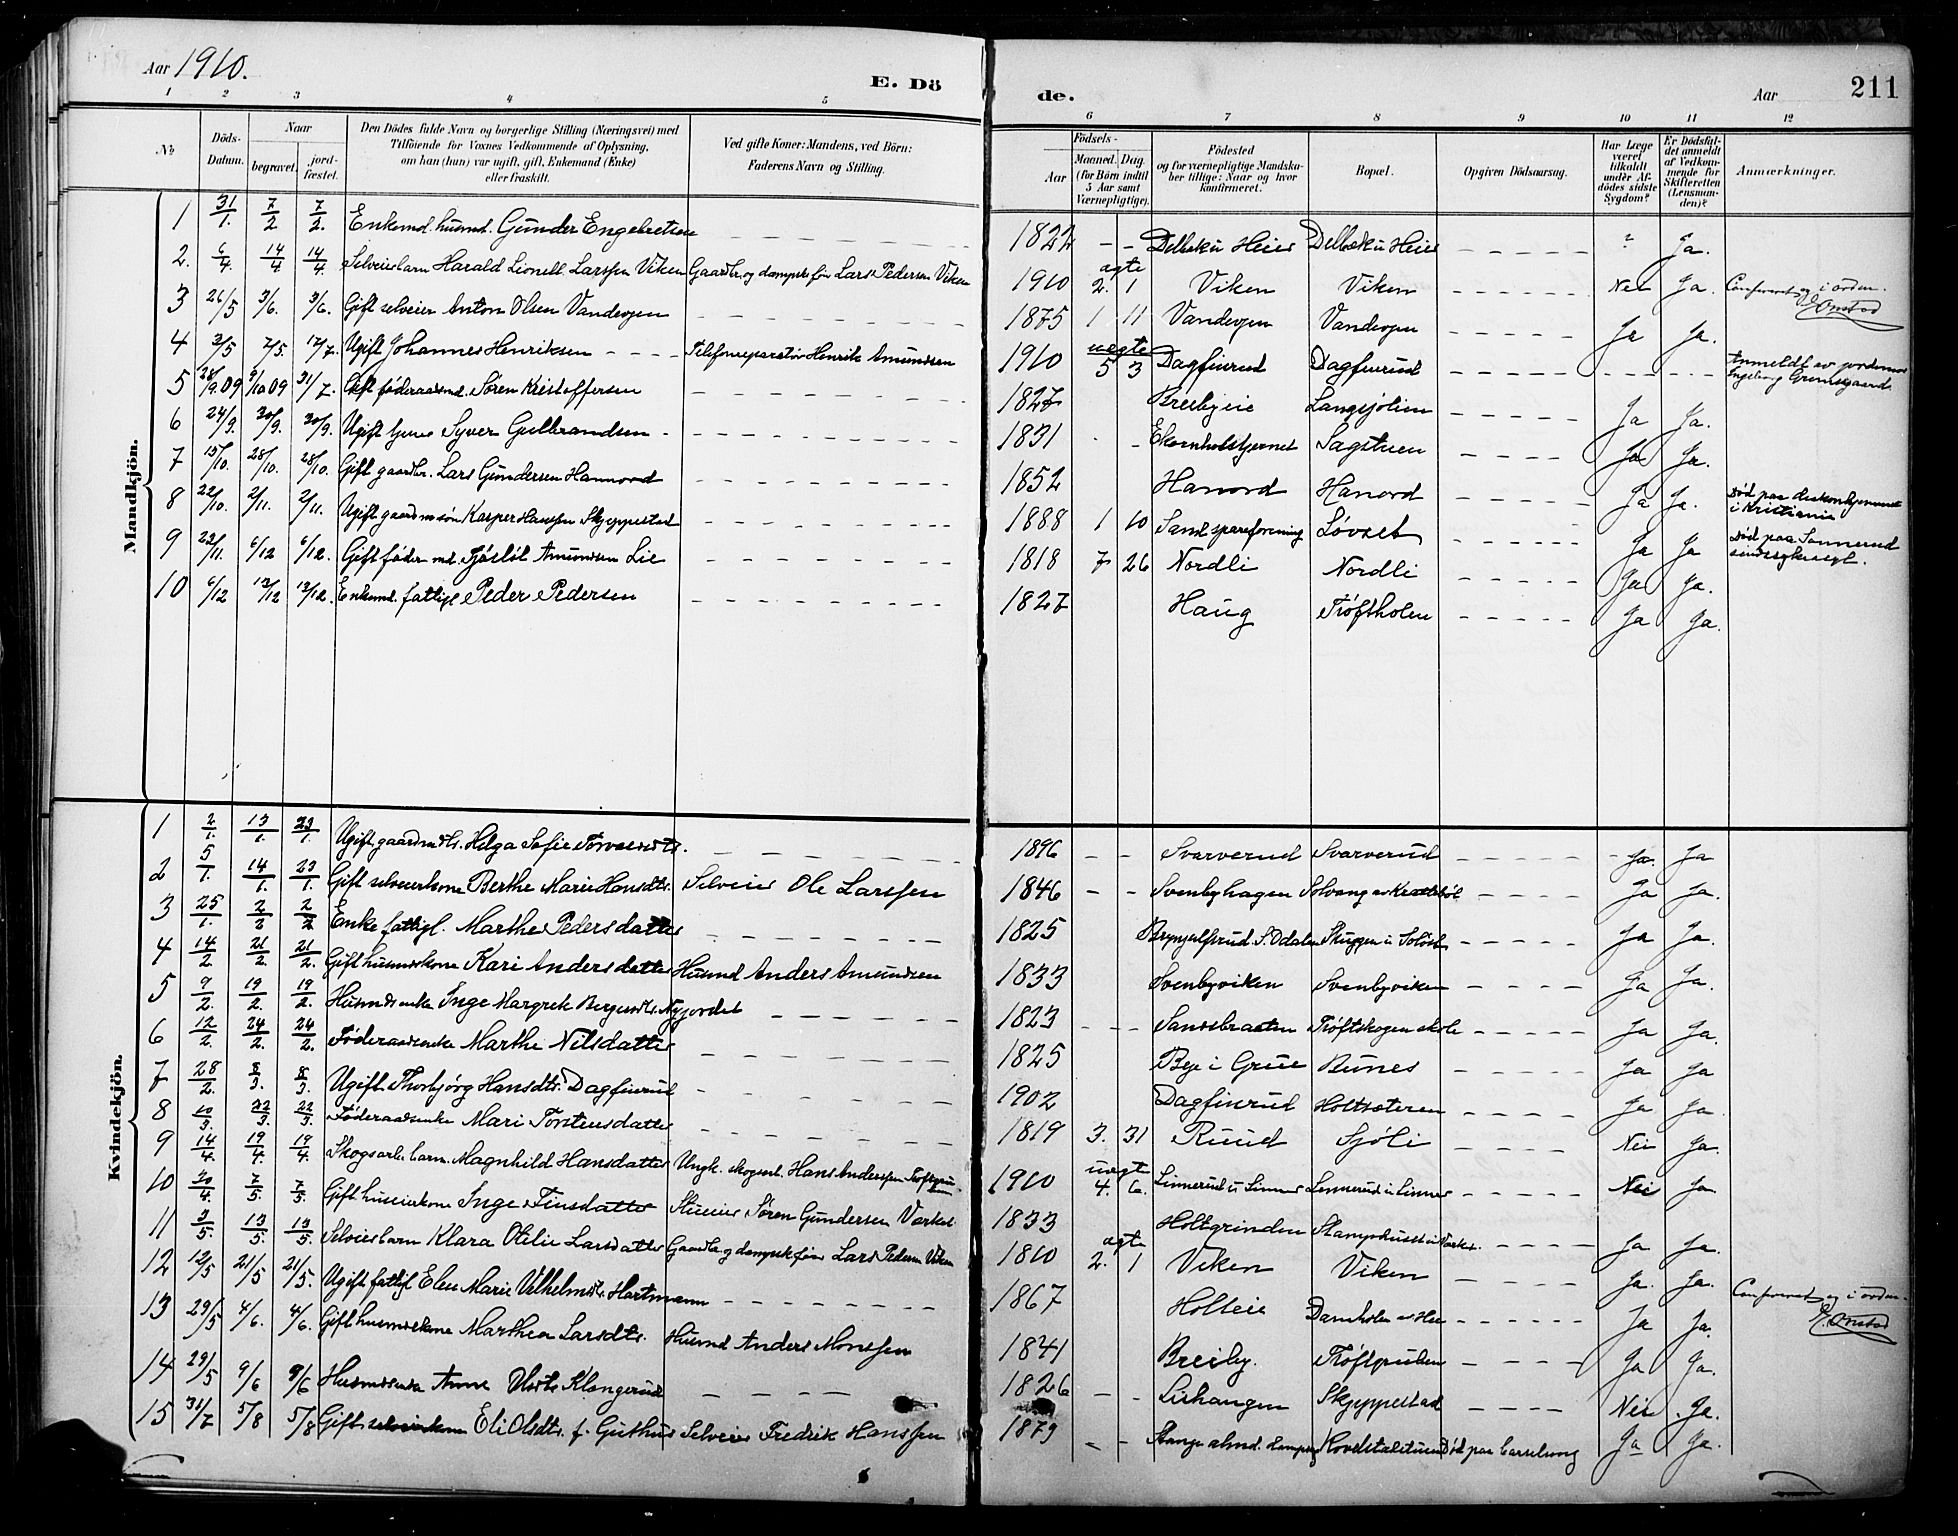 Aar 1910.
E. Döde.
Aar
211
1 2 3 4 5 6 7 8 9 10 11 12
№
Döds-Datum.
Naar
begravet.
jord-fæstet.
Den Dödes fulde Navn og borgerlige Stilling (Næringsvei) med
Tilföiende for Voxnes Vedkommende af Oplysning,
om han (hun) var ugift, gift, Enkemand (Enke)
eller fraskilt.
Ved gifte Koner: Mandens, ved Börn:
Faderens Navn og Stilling.
Födsels-
Aar
Maaned. Dag.
(for Börn indtil 5 Aar samt Værnepligtige).
Födested
og for værnepligtige Mandskaber tillige: Naar og hvor konfirmeret.
Bopæl.
Opgiven Dödsaarsag.
Har Læge været tilkaldt under Afdödes sidste Sygdom?
Er Dödsfaldet anmeldt af Vedkommende for Skifteretten (Lensmanden)?
Anmærkninger.
Mandkjön.
1 31/1. 7/2 7/2. Enkemd. husmd. Gunder Engebretsen 1822 - - Delbæk u Heier Delbæk u Heier ? Ja.
2. 6/4. 14/4 14/4. Selveierbarn Harald Lionell Larssen Viken Gaardbr. og dampskfører Lars Pedersen Viken 1910 ægte 2. 1 Viken Viken Nei Ja. Confereret og i orden. Onstad
3 26/5 3/6. 3/6. Gift selveier Anton Olsen Vandogen 1875 1 11 Vandogen Vandogen Ja Ja.
4 2/5 7/5. 17/7. Ugift Johannes Henriksen Telefonreparatør Henrik Amundsen 1910 uægte 5 3 Dagfinrud Dagfinrud Anmeldt av jordmor Ingeborg Grimsgaard
5 28/9.09 9/10 09 31/7. Gift føderaadsmd. Søren Kristoffersen 1827 Breibyeie Langsjølien Ja Ja.
6 24/9. 30/9. 30/9. Ugift tjener Syver Gulbrandsen 1831 Ekornholstjernet Sagstuen Ja Ja.
7 15/10. 28/10. 28/10. Gift gaardbr. Lars Gundersen Hannord 1852 Hanord Hanord Ja Ja. Død paa diakonhjemmet i Kristiania
8 22/10. 2/11. 2/11. Ugift gaardmsøn Kasper Hanssen Skjeppestad 1888 1 10 Sand spareforening Løvset Ja Ja Død paa Sannerud sindssykeasyl.
9 22/11. 6/12 6/12. Gift føder.md. Tjøsløl Amundsen Lie 1818 7 26 Nordli Nordli Ja Ja.
10 6/12 12/12 12/12. Enkemd. fattigl Peder Pedersen 1827 Haug Trøftholen Ja Ja.
Kvindekjön.
1 2/1. 13/1. 23/1. Ugift gaardmdtr. Helga Sofie Torvaldsdtr. 1896 - - Svarverud Svarverud Ja. Ja
2 5/1. 14/1. 23/1. Gift selveierkone Berthe Marie Hansdtr. Selveier Ole Larssen 1846 - - Svenbyhagen Solvang av Kratebøl Ja Ja.
3 25/1. 2/2 2/2 Enke fattigl. Marthe Pedersdatter 1825 Brynjulfsrud S. Odalen Skuggen i Soløst Ja Ja.
4 14/2 21/2. 21/2. Gift husmdskone Kari Andersdatter Husmd Anders Amundsen 1833 Svenbyviken Svenbyviken Ja Ja.
5 9/2. 19/2. 19/2. Husmdsenke Inge Margrete Bergersdtr. Nyjordet 1823 - - Sandsbraaten Trøftskogen skole Ja Ja.
6 12/2. 24/2. 24/2. Føderaadsenke Marthe Nilsdatter 1825 Bye i Grue Bunes Ja Ja
7 28/2. 8/3. 8/3. Ugift Thorbjørg Hansdtr. Dagfinrud 1902 Dagfinrud Holtsæteren Ja Ja
8 10/3. 22/3. 22/3. Føderaadsenke Mari Torstensdatter 1819 3. 31 Ruud Sjøli Nei Ja.
9 14/4. 19/4. 19/4. Skogsarb. barn. Magnhild Hansdatter Ungk. skogsarb. Hans Anderssen 1910 uægte 4. 6. Linnerud u Linner Linnerud u Linner Nei Ja
10 30/4 7/5. 7/5. Gift huseierkone Inge Finsdatter Huseier Søren Gundersen Varkel. 1833 Holtgrinden Stamphuset u Varkel. Ja Ja.
11 3/5. 13/5. 13/5. Selveierbarn Klara Otilie Larsdatter Gaardbr. og dampskfører Lars Pedersen Viken 1810 ægte 2. 1 Viken Viken Ja. Ja. Confereret og i orden. Onstad
12 12/5 21/5 21/5. Ugift fattigl Elen Marie Vilhelmsdtr. Hartmann 1867 Holteie Damholen Ja Ja.
13 29/5 4/6. 4/6. Gift husmdskone Marthea Larsdtr. Husmd Anders Monssen 1841 Breiby. Trøftpulen Ja Ja.
14 29/5 9/6 9/6 Husmdsenke Anne Olsdtr Klongerud 1826 - - Liihangen Skjeppestad Nei Ja.
15 31/7 5/8 5/8 Gift selveierkone Eli Olsdtr. f. Guthus Selveier Fredrik Hanssen 1879 - - Stange almd. Hovelstadstuen Død paa barselseng Ja Ja.